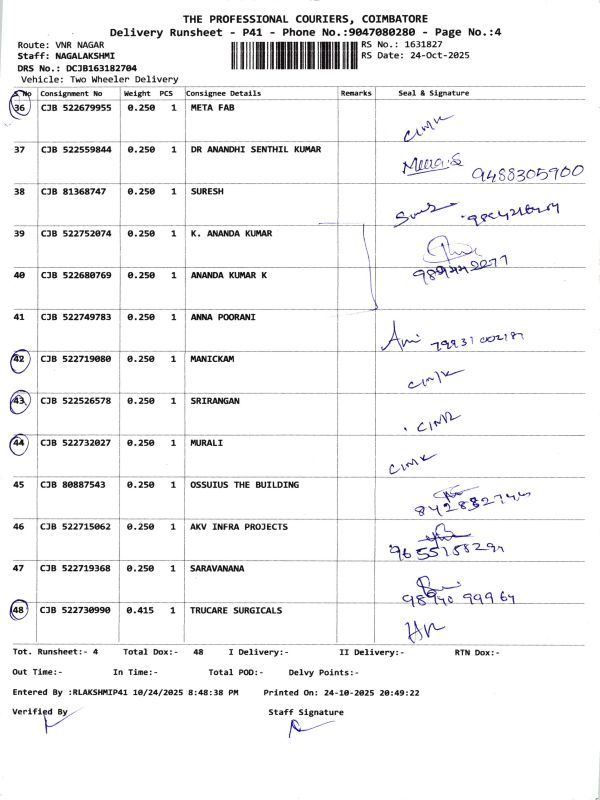 THE PROFESSIONAL COURIERS, COIMBATORE
Delivery Runsheet - P41 - Phone No.:9047080280 - Page No.:4
Route: VNR NAGAR RS No.: 1631827
Staff: NAGALAKSHMI RS Date: 24-Oct-2025
DRS No.: DCJB163182704
Vehicle: Two Wheeler Delivery
S.No Consignment No Weight PCS Consignee Details Remarks Seal & Signature
36 CJB 522679955 0.250 1 META FAB
37 CJB 522559844 0.250 1 DR ANANDHI SENTHIL KUMAR
9488305900
38 CJB 81368747 0.250 1 SURESH
39 CJB 522752074 0.250 1 K. ANANDA KUMAR
40 CJB 522680769 0.250 1 ANANDA KUMAR K
41 CJB 522749783 0.250 1 ANNA POORANI
42 CJB 522719080 0.250 1 MANICKAM
43 CJB 522526578 0.250 1 SRIRANGAN
44 CJB 522732027 0.250 1 MURALI
45 CJB 80887543 0.250 1 OSSUIUS THE BUILDING
46 CJB 522715062 0.250 1 AKV INFRA PROJECTS
47 CJB 522719368 0.250 1 SARAVANANA
48 CJB 522730990 0.415 1 TRUCARE SURGICALS
Tot. Runsheet:- 4 Total Dox:- 48 I Delivery:- II Delivery:- RTN Dox:-
Out Time:- In Time:- Total POD:- Delvy Points:-
Entered By :RLAKSHMIP41 10/24/2025 8:48:38 PM Printed On: 24-10-2025 20:49:22
Verified By Staff Signature